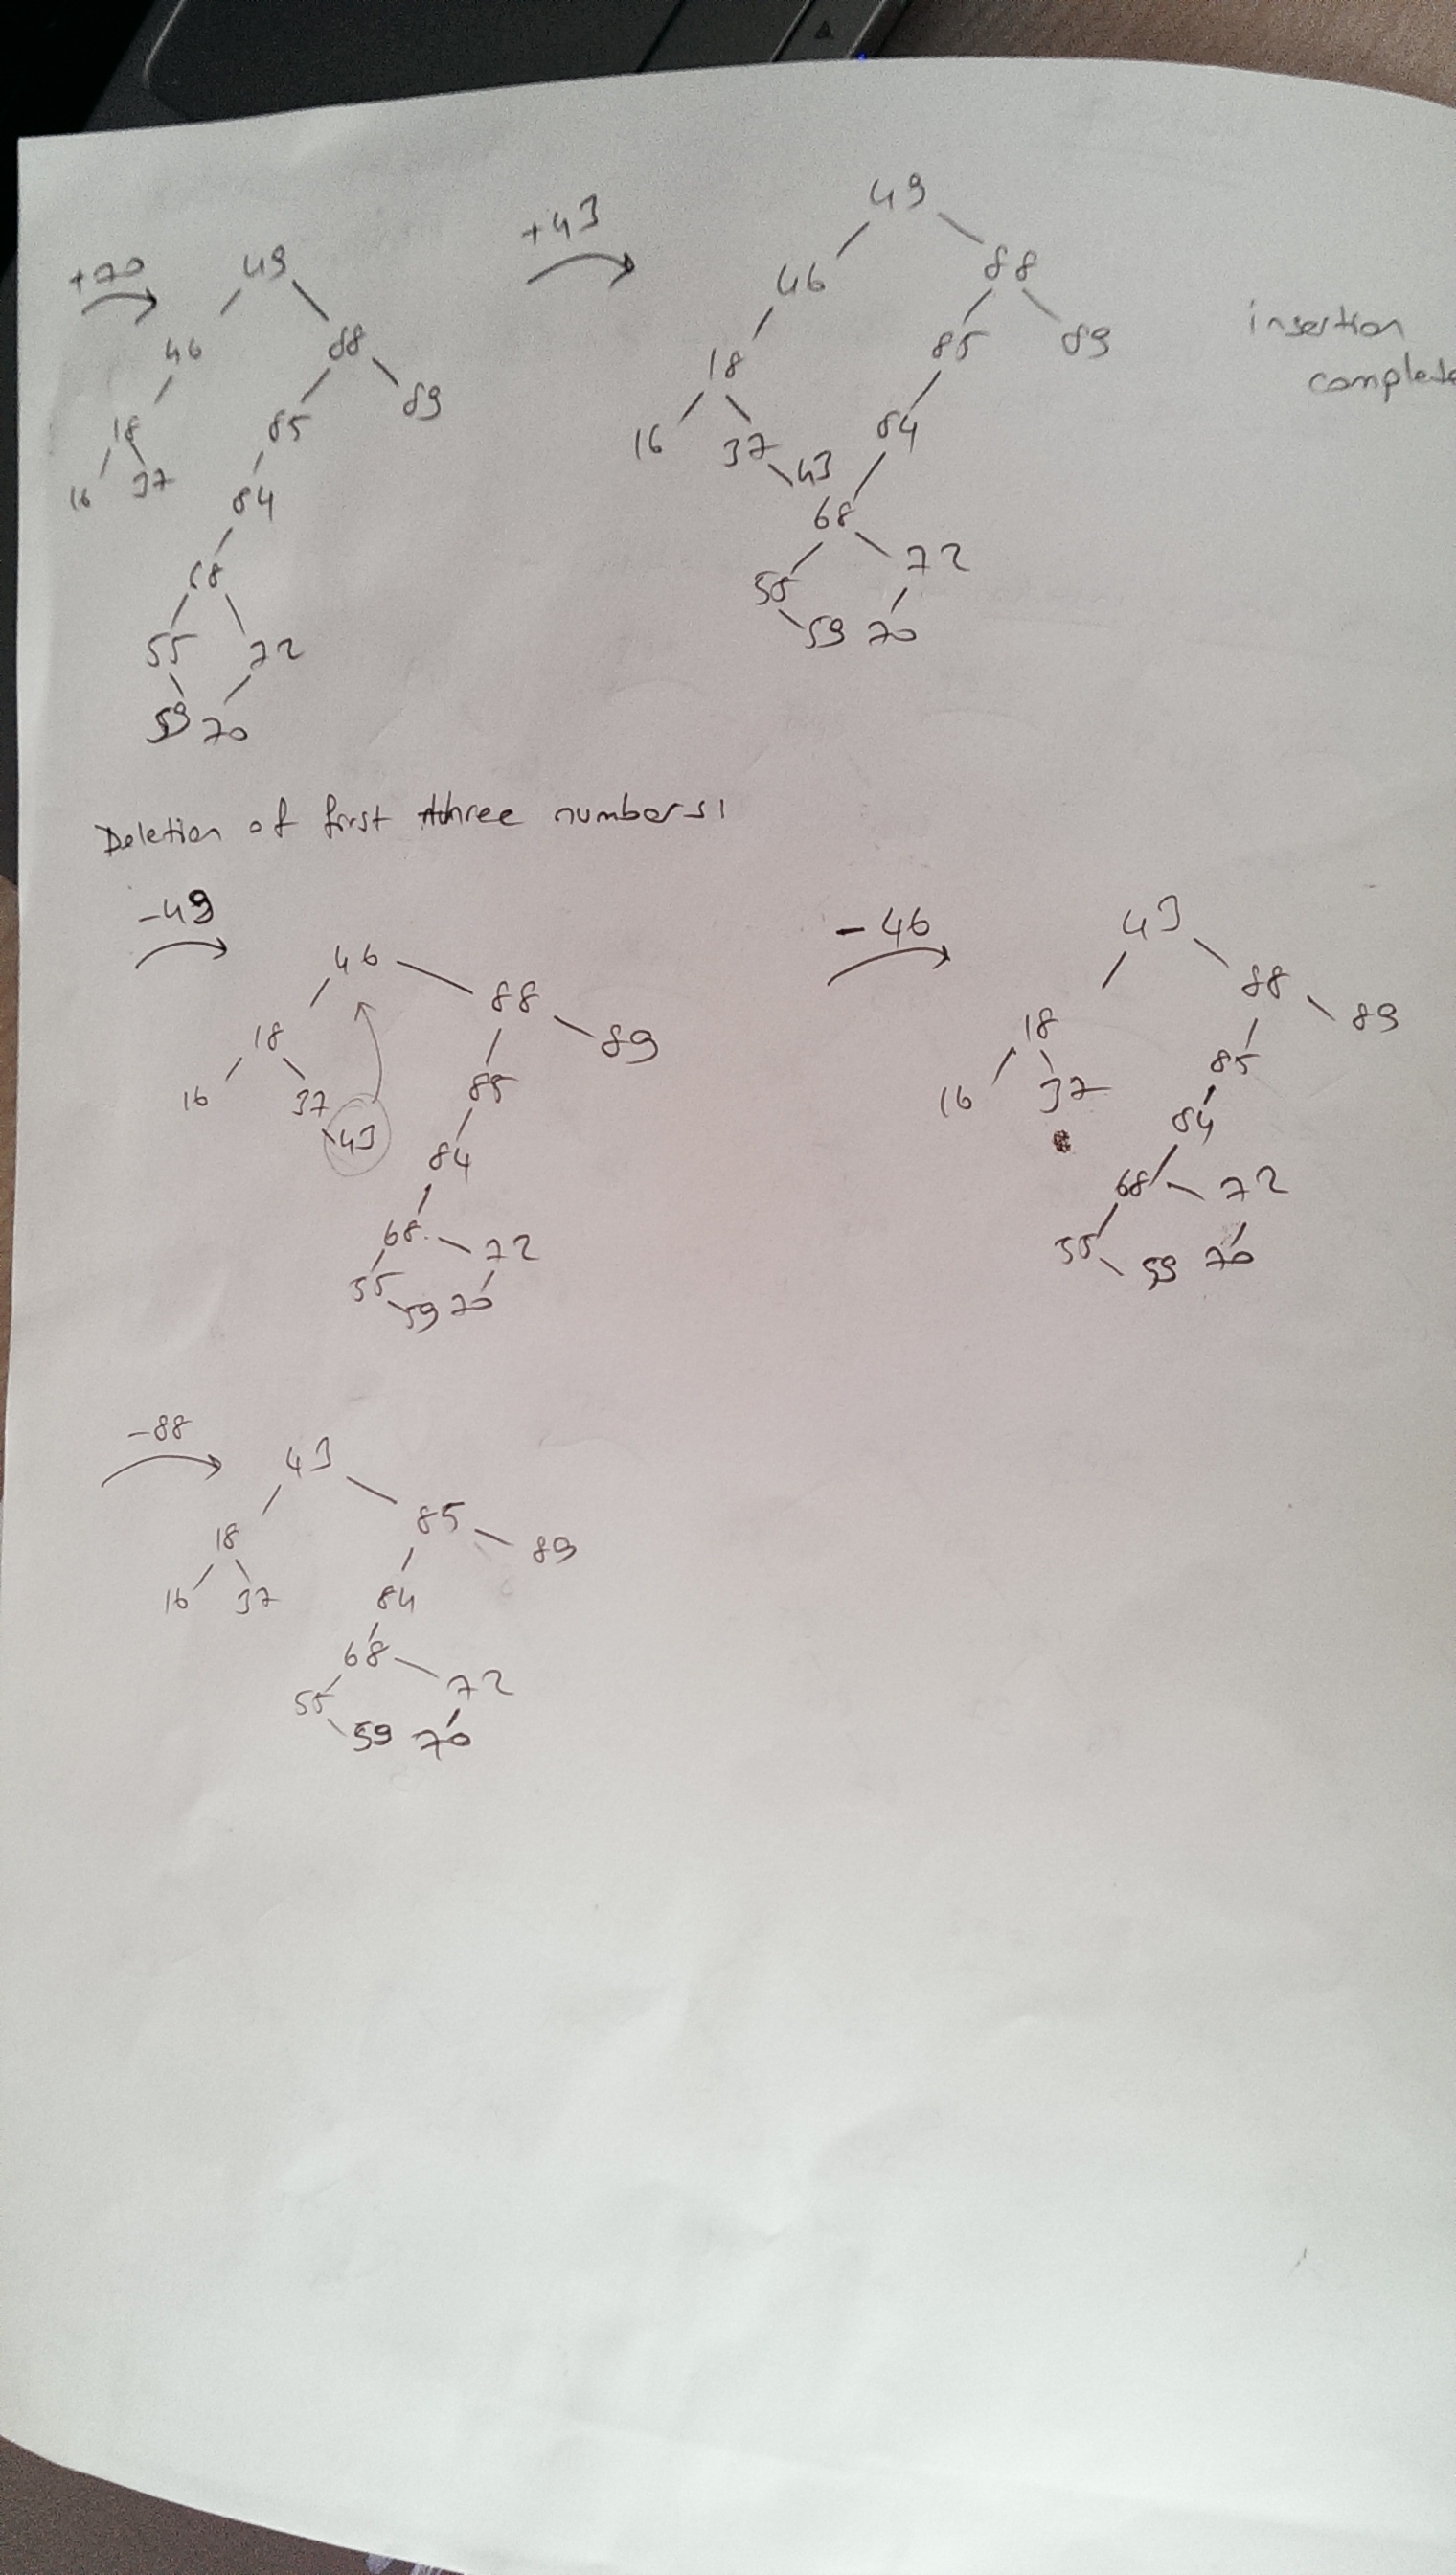 +70
49
46 88
18 85 89
16 37 84
68
55 72
59 70
+43
49
46 88
18 85 89
16 37 43 84
68
55 72
59 70
insertion
complete
Deletion of first three numbers:
-49
46 88
18 89
16 37 85
43 84
68 72
55 59 70
-46
43 88
18 89
16 37 85
84
68 72
55 59 70
-88
43
18 85 89
16 37 84
68 72
55 59 70